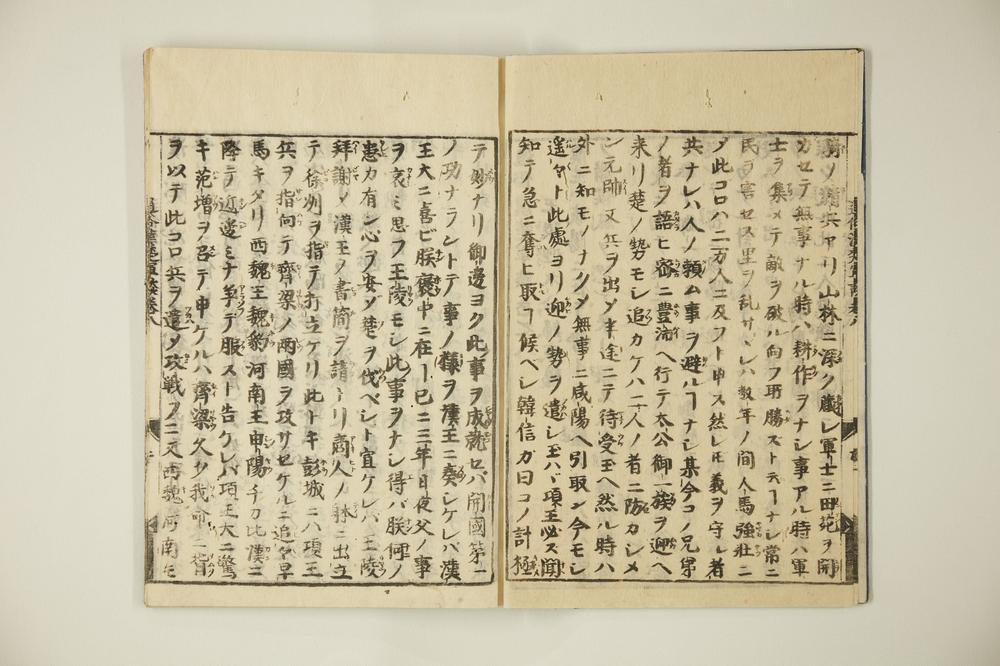 ノ精兵アリ山林ニ深ク蔵レ軍士ニ田苑ヲ開
カセテ無事ナル時ハ耕作ヲナシ事アル時ハ軍
士ヲ集メテ敵ヲ破ル向フ所勝ズト云ーナシ常ニ
民ヲ害セス里ヲ乱サズシハ数年ノ間人馬強壮ニ
〆此コロハ二万人ニ及フト申ス然レ𪜈義ヲ守ル者
共ナレハ人ノ頼ム事ヲ避ルヿナシ某今コノ兄弟
ノ者ヲ語ヒ密ニ豊沛ヘ行テ太公御一族ヲ迎ヘ
来リ楚ノ勢モシ追カケハ二人ノ者ニ防カシメ
ン元帥又兵ヲ出〆半途ニテ待受玉ヘ然ル時ハ
外ニ知モノナクメ無事ニ咸陽ヘ引取ン今モシ
遥々ト此處ヨリ迎ノ勢ヲ遣シ玉ハヾ項王必ス聞
知テ急ニ奪ヒ取ヿ候ベシ韓信ガ曰コノ計極
テ妙ナリ御邊ヨク此事ヲ成就セバ開國第一
ノ功ナラントテ事ノ様ヲ漢王ニ奏シケレバ漢
王大ニ喜ビ朕褒中ニ在ー已ニ三年日夜父ノ事
ヲ哀ミ思フ王陵モシ此事ヲナシ得バ朕何ノ
患カ有ン心ヲ安〆楚ヲ伐ベシト宣ケレバ王陵
拜謝〆漢王ノ書簡ヲ請トリ商人ノ躰ニ出立
テ徐州ヲ指テ打立ケリ此トキ彭城ニハ項王
兵ヲ指向テ齊梁ノ両國ヲ攻サセケルニ追々早
馬キタリ西魏王魏豹河南王申陽ノ千刀比漢ニ
降テ近邊ミナ争デ服スト告ケレバ項王大ニ驚
キ范増ヲ召テ申ケルハ齊梁久ク我命ニ背
ヲ以テ此コロ兵ヲ遣〆攻戦フニ又西魏河南モ